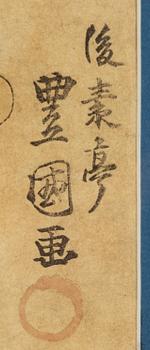 後素亭
豊國画